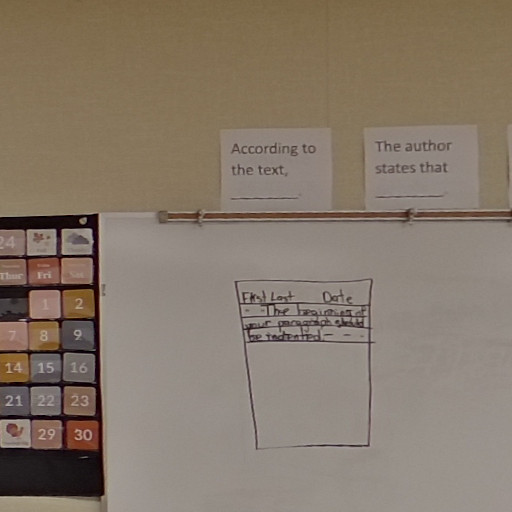 According to
the text,
The author
states that
24
Thur Fri Sat
1 2
7 8 9
14 15 16
21 22 23
29 30
First Last Date
- - The beginning of
your paragraph should
be indented - - -